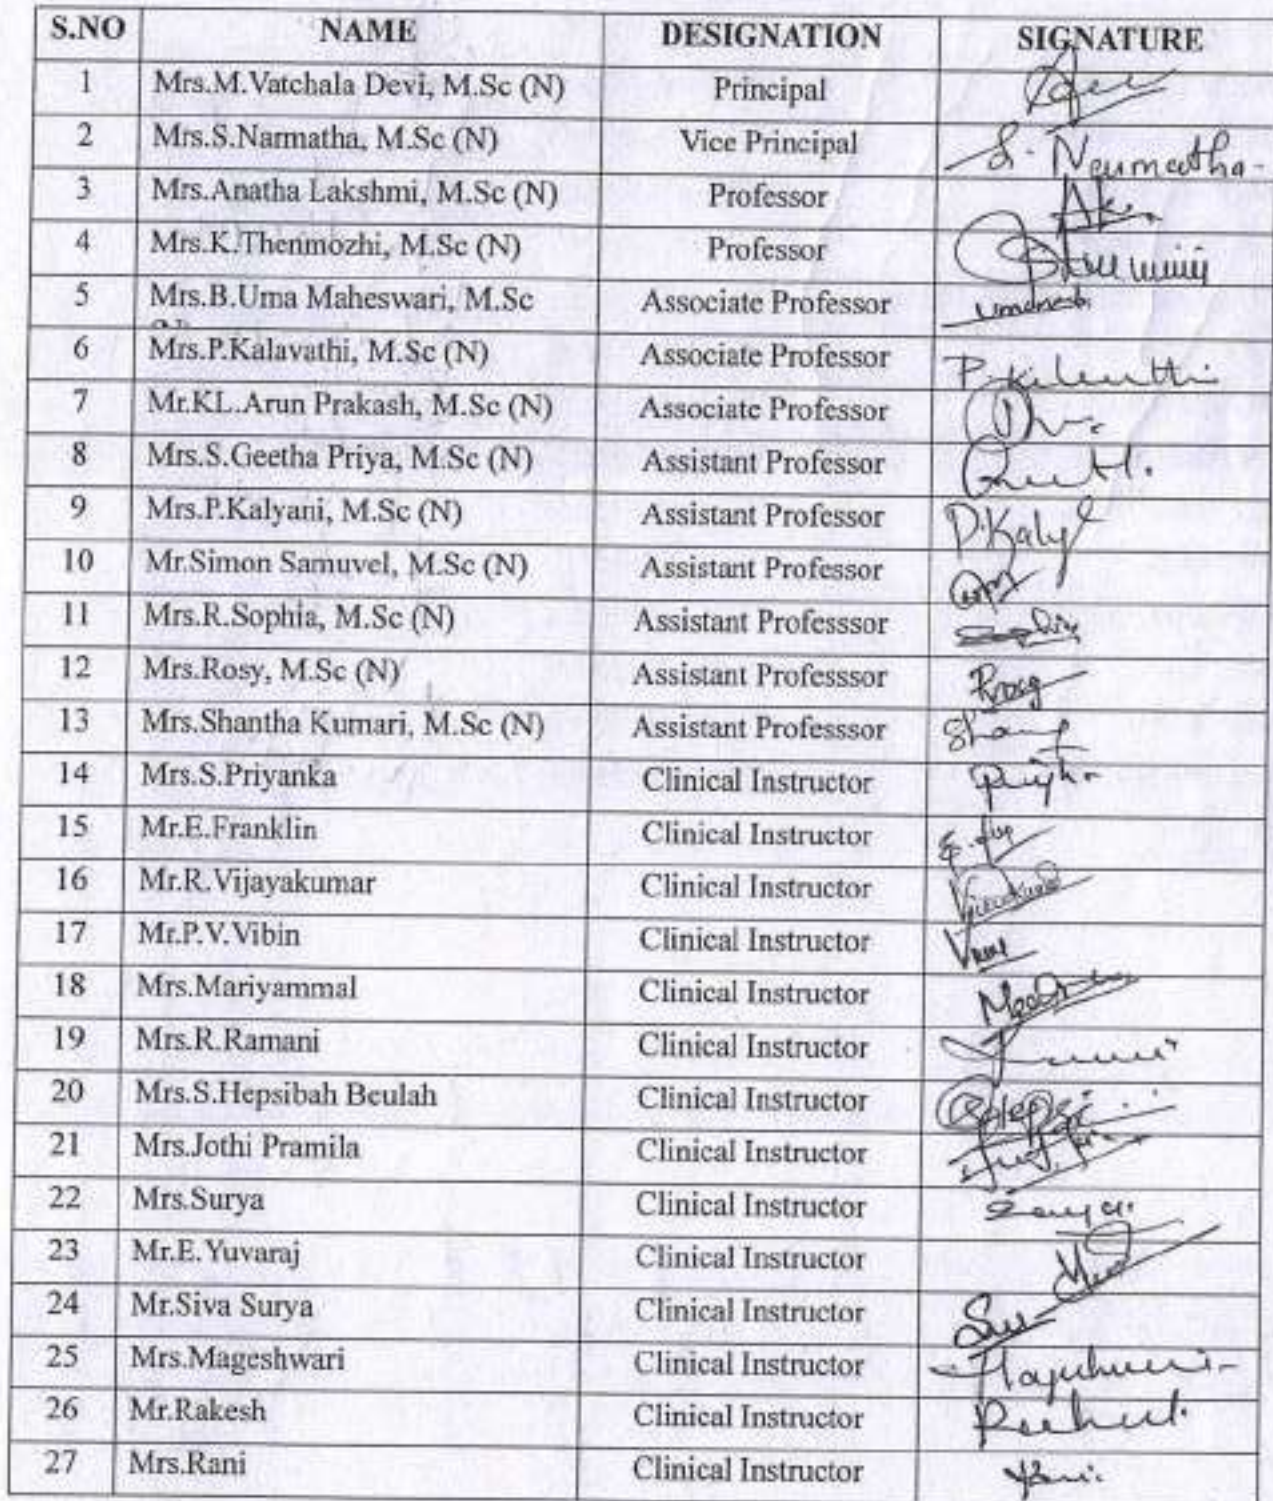 S.NO NAME DESIGNATION SIGNATURE
1 Mrs.M.Vatchala Devi, M.Sc (N) Principal
2 Mrs.S.Narmatha, M.Sc (N) Vice Principal S. Narmatha
3 Mrs.Anatha Lakshmi, M.Sc (N) Professor
4 Mrs.K.Thenmozhi, M.Sc (N) Professor
5 Mrs.B.Uma Maheswari, M.Sc Associate Professor
6 Mrs.P.Kalavathi, M.Sc (N) Associate Professor
7 Mr.KL.Arun Prakash, M.Sc (N) Associate Professor
8 Mrs.S.Geetha Priya, M.Sc (N) Assistant Professor
9 Mrs.P.Kalyani, M.Sc (N) Assistant Professor
10 Mr.Simon Samuvel, M.Sc (N) Assistant Professor
11 Mrs.R.Sophia, M.Sc (N) Assistant Professsor
12 Mrs.Rosy, M.Sc (N) Assistant Professsor Rosy
13 Mrs.Shantha Kumari, M.Sc (N) Assistant Professsor
14 Mrs.S.Priyanka Clinical Instructor
15 Mr.E.Franklin Clinical Instructor
16 Mr.R.Vijayakumar Clinical Instructor
17 Mr.P.V.Vibin Clinical Instructor
18 Mrs.Mariyammal Clinical Instructor
19 Mrs.R.Ramani Clinical Instructor
20 Mrs.S.Hepsibah Beulah Clinical Instructor
21 Mrs.Jothi Pramila Clinical Instructor
22 Mrs.Surya Clinical Instructor
23 Mr.E.Yuvaraj Clinical Instructor
24 Mr.Siva Surya Clinical Instructor
25 Mrs.Mageshwari Clinical Instructor
26 Mr.Rakesh Clinical Instructor
27 Mrs.Rani Clinical Instructor